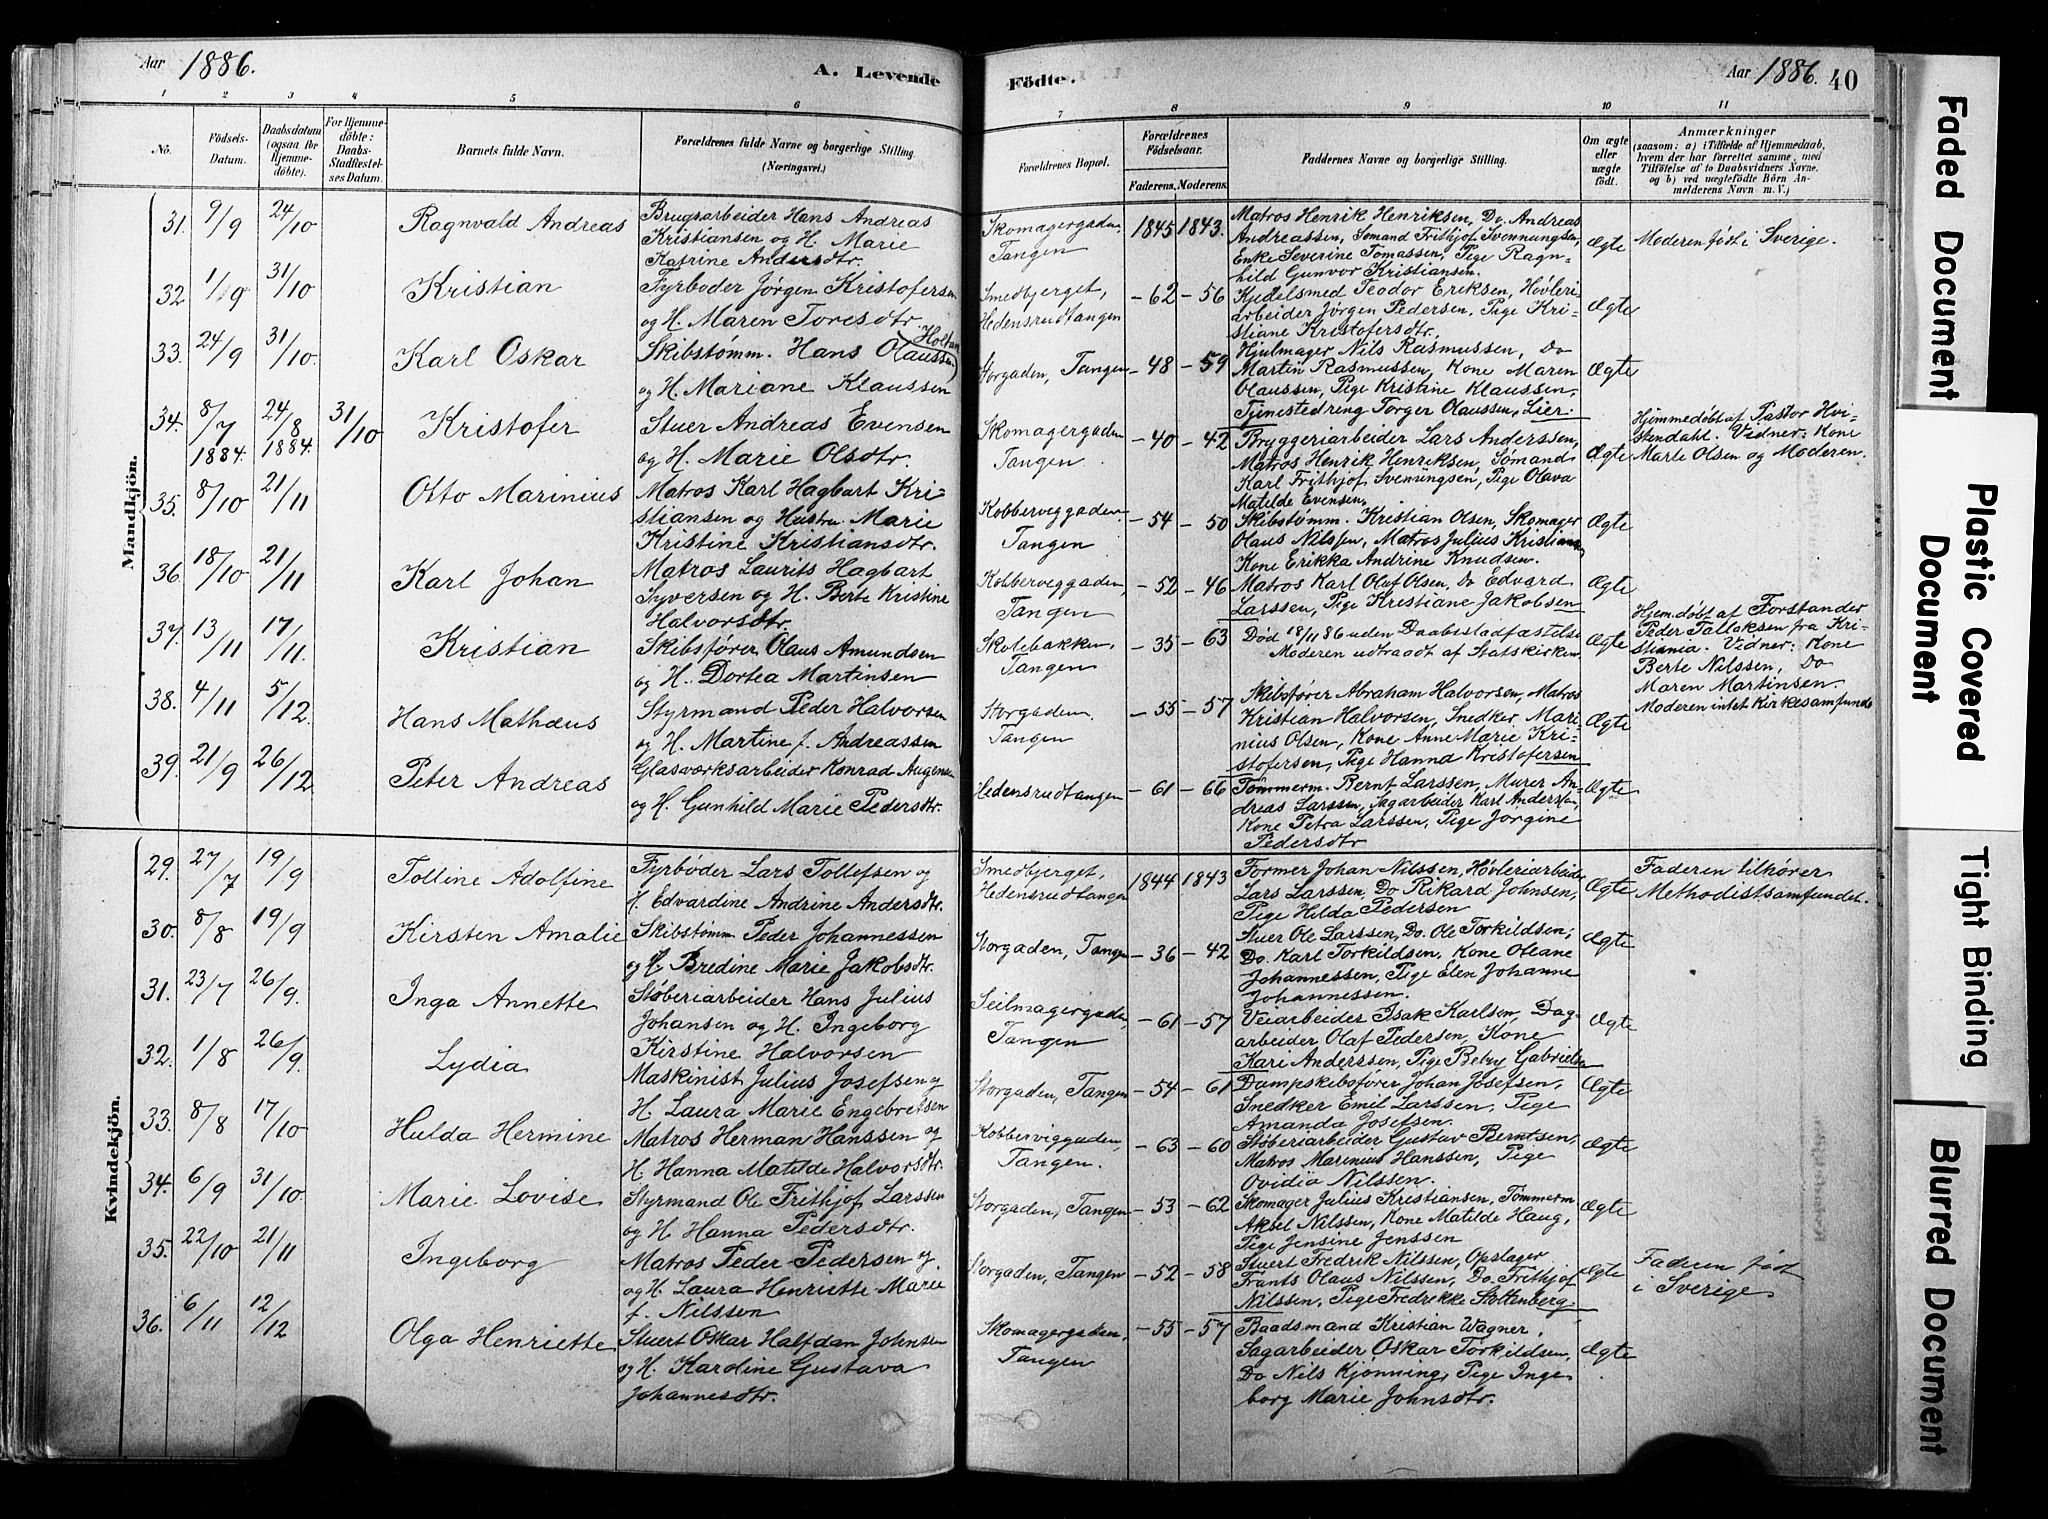 Aar 1886. A. Levende Födte. Aar 1886. 40
1 2 3 4 5 6 7 8 9 10 11
No. Födsels-Datum. Daabsdatum (ogsaa for Hjemme-döbte). For Hjemme-döbte: Daabs-Stadfæstel-ses Datum. Barnets fulde Navn. Forældrenes fulde Navne og borgerlige Stilling. (Næringsvei.) Forældrenes Bopæl. Forældrenes Födselsaar. Faderens. Moderens. Faddernes Navne og borgerlige Stilling. Om ægte eller uægte födt. Anmærkninger (saasom: a) i Tilfælde af Hjemmedaab, hvem der har forrettet samme, med Tilföielse af to Daabsvidners Navne, og b) ved uægtefödte Börn An-melderens Navn m. V.)
Mandkjön.
31. 9/9 24/10 Ragnvald Andreas
Brugsarbeider Hans Andreas
Kristiansen og H. Marie
Katrine Andersdtr.
Skomagergaden,
Tangen
1845 1843.
Matros Henrik Henriksen, Do. Andreas
Andreassen, Sømand Frithjof Svennungsen,
Enke Severine Tomassen, Pige Ragn-
hild Gunvor Kristiansen.
Ægte
Moderen født i Sverige.
32 1/9 31/10 Kristian
Fyrbøder Jørgen Kristofersen
og H. Maren Toresdtr.
Smedbjerget,
Hedensrudtangen
-62 -56
Kjedelsmed Teodor Eriksen, Høvleri-
arbeider Jørgen Pedersen, Pige Kri-
stiane Kristofersdtr.
Ægte
33. 24/9 31/10. Karl Oskar
Skibstømm. Hans Olaussen (Holtan)
og H. Mariane Klaussen
Storgaden, Tangen
-48 -59
Hjulmager Nils Rasmussen, Do
Martin Rasmussen, Kone Maren
Olaussen, Pige Kristine Klaussen,
Tjenestedreng Torger Olaussen, Lier.
Ægte
34. 8/7 1884. 24/8 1884. 31/10 Kristofer
Stuer Andreas Evensen
og H. Marie Olsdtr.
Skomagergaden
Tangen
-40 -42
Bryggeriarbeider Lars Anderssen,
Matros Henrik Henriksen, Sømand
Karl Frithjof Svenungsen, Pige Olava
Matilde Evensen.
Ægte
Hjemmedøbt af Pastor Hvi-
stendahl. Vidner: Kone
Marte Olsen og Moderen.
35. 8/10 21/11 Otto Marinius
Matros Karl Hagbart Kri-
stiansen og Hustru Marie
Kristine Kristiansdtr.
Kobberviggaden,
Tangen
-54 -50
Skibstømm. Kristian Olsen, Skomager
Olaus Nilssen, Matros Julius Kristiansen
Kone Erikka Andrine Knudsen.
Ægte
36. 18/10 21/11 Karl Johan
Matros Laurits Hagbart
Syversen og H. Berte Kristine
Halvorsdtr.
Kobberviggaden,
Tangen
-52 -46
Matros Karl Olaf Olsen, Do Edvard
Larssen, Pige Kristiane Jakobsen
Ægte
37. 13/11 17/11. Kristian
Skibsfører Olaus Amundsen
og H. Dortea Martinsen
Skolebakken,
Tangen
-35 -63
Død 18/11 86 uden Daabsstadfæstelse
Moderen udtraadt af Statskirken.
Ægte
Hjemdøbt af Forstander
Peder Tallaksen fra Kri-
stiania. Vidner: Kone
Berte Nilssen, Do
Maren Martinsen.
Moderen intet Kirkesamfund
38. 4/11 5/12. Hans Mathæus
Styrmand Peder Halvorsen
og H. Martine f. Andreassen
Storgaden,
Tangen
-55 -57
Skibsfører Abraham Halvorsen, Matros
Kristian Halvorsen, Snedker Mari-
nius Olsen, Kone Anne Marie Kri-
stofersen, Pige Hanna Kristofersen
Ægte
39. 21/9 26/12 Peter Andreas
Glasværksarbeider Konrad Augensen
og H. Gunhild Marie Pedersdtr.
Hedensrudtangen
-61 -66
Tømmerm. Bernt Larssen, Murer An-
dreas Larssen, Sagarbeider Karl Anderssen,
Kone Petra Larssen, Pige Jørgine
Pedersdtr
Ægte
Kvindekjön.
29. 27/7 19/9 Tolline Adolfine
Fyrbøder Lars Tollefsen og
H. Edvardine Andrine Andersdtr.
Smedbjerget,
Hedensrudtangen
1844 1843
Former Johan Nilssen, Høvleriarbeider
Lars Larssen, Do Rikard Johnsen,
Pige Hilda Pedersen
Ægte
Faderen tilhører
Methodistsamfundet.
30. 8/8 19/9 Kirsten Amalie
Skibstømm Peder Johannessen
og H. Bredine Marie Jakobsdtr.
Storgaden, Tangen
-36 -42
Stuer Ole Larssen, Do. Ole Torkildsen,
Do. Karl Torkildsen, Kone Oleane
Johannessen, Pige Elen Johanne
Johannessen.
Ægte
31. 23/7 26/9. Inga Annette
Støberiarbeider Hans Julius
Johansen og H. Ingeborg
Kirstine Halvorsen
Seilmagergaden,
Tangen
-61 -57
Veiarbeider Isak Karlsen, Dag-
arbeider Olaf Pedersen, Kone
Kari Anderssen, Pige Betzy Gabrielsen
Ægte
32. 1/8 26/9. Lydia
Maskinist Julius Josefsen og
H. Laura Marie Engebretsen
Storgaden, Tangen
-54 -61
Dampskibsfører Johan Josefsen,
Snedker Emil Larssen, Pige
Amanda Josefsen.
Ægte
33. 8/8 17/10 Hulda Hermine
Matros Herman Hanssen og
H. Hanna Matilde Halvorsdtr.
Kobberviggaden,
Tangen.
-63 -60
Støberiarbeider Gustav Berntsen,
Matros Marinius Hanssen, Pige
Ovidia Nilssen.
Ægte
34. 6/9 31/10 Marie Lovise
Styrmand Ole Frithjof Larssen
og H. Hanna Pedersdtr.
Storgaden, Tangen
-53 -62
Skomager Julius Kristiansen, Tømmerm
Aksel Nilssen, Kone Matilde Haug,
Pige Jensine Jenssen
Ægte
35. 22/10 21/11 Ingeborg
Matros Peder Pedersen og
og H. Laura Henriette Marie
f. Nilssen
Storgaden, Tangen
-52 -58
Stuert Fredrik Nilssen, Opslager
Frants Olaus Nilssen, Do. Frithjof
Nilssen, Pige Fredrekke Stoltenberg
Ægte
Faderen født
i Sverige.
36. 6/11 12/12 Olga Henriette
Stuert Oskar Halfdan Johnsen
og H. Karoline Gustava
Johannesdtr.
Skomagergaden,
Tangen
-55 -57
Baadsmand Kristian Wagner,
Sagarbeider Oskar Torkildsen,
Do Nils Kjønning, Pige Inge-
borg Marie Johnsdtr.
Ægte
Faded Document
Plastic Covered
Document
Tight Binding
Blurred Document